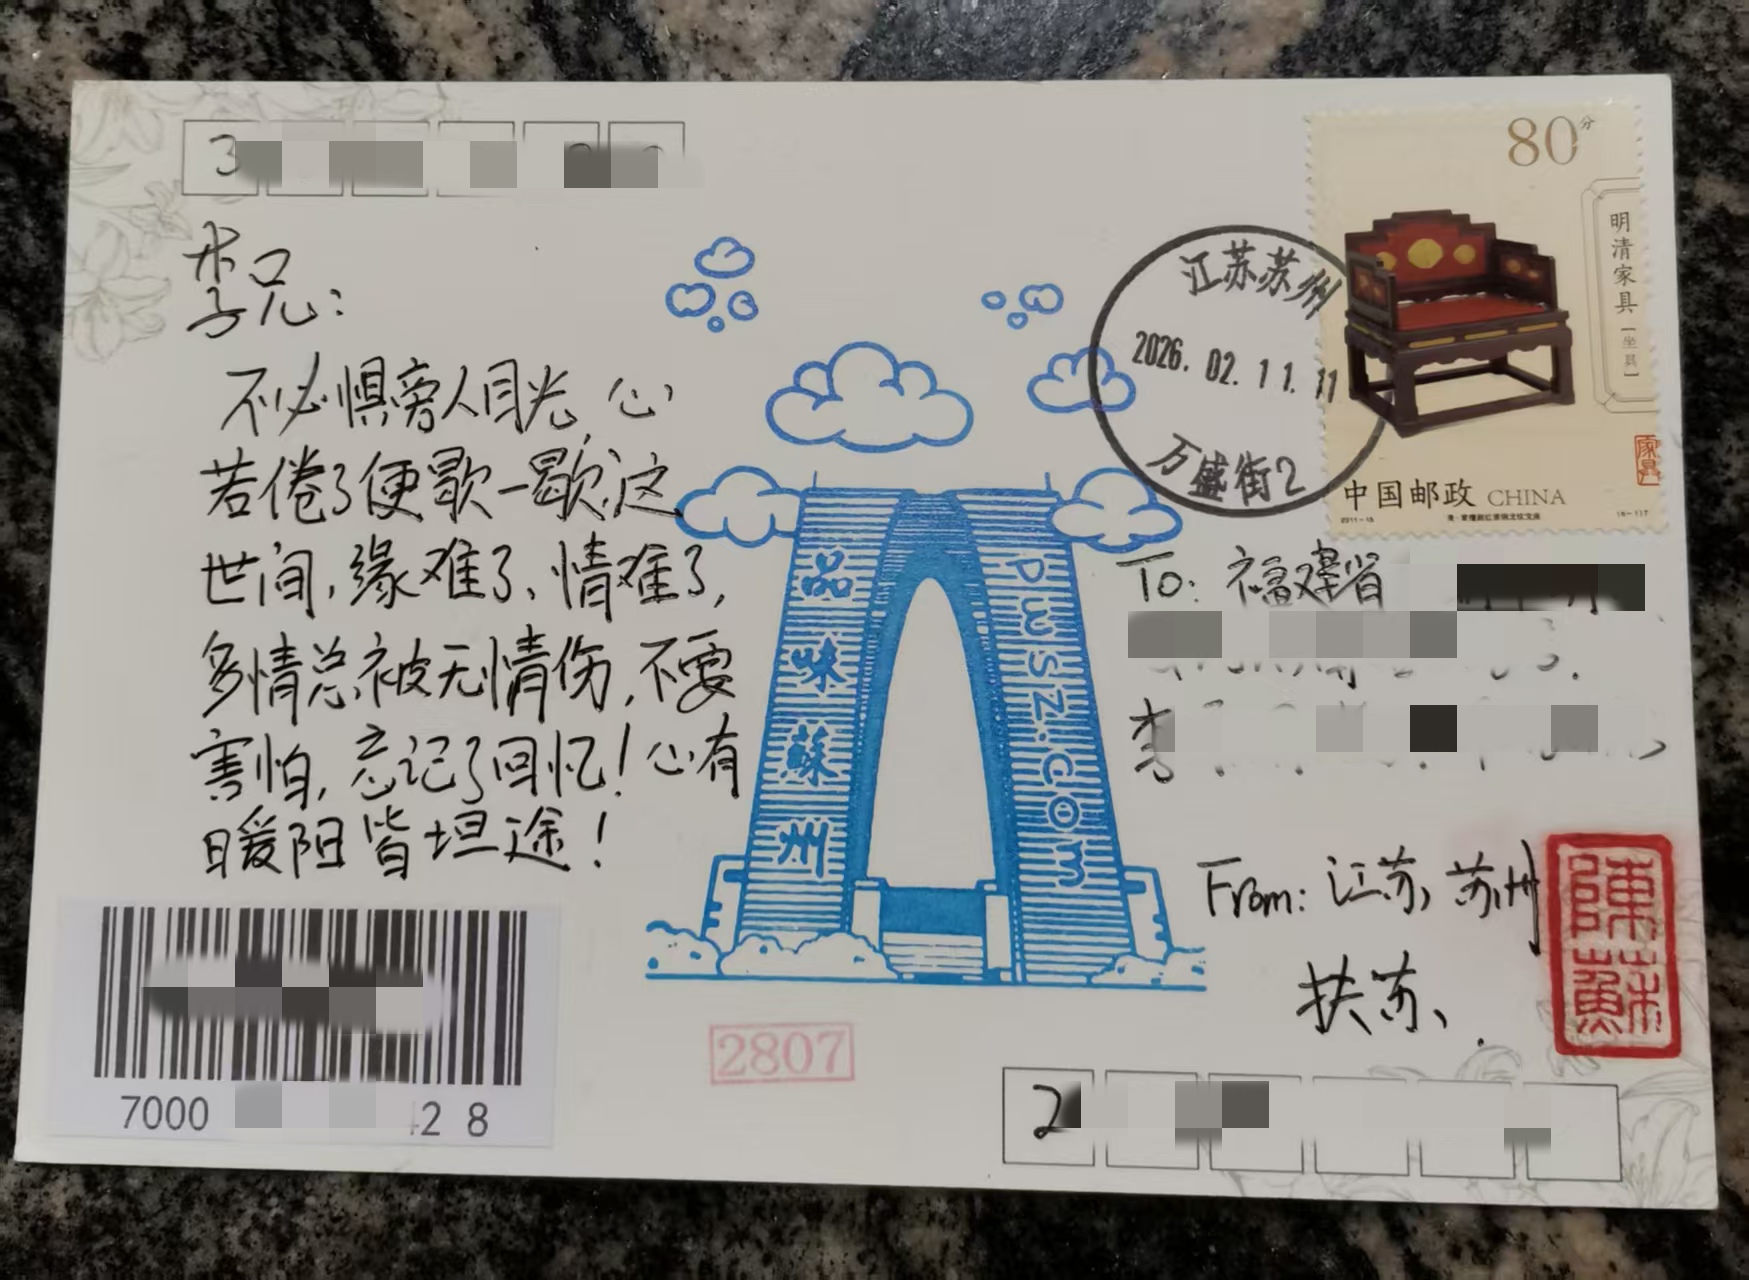 3
李兄:
不必惧旁人目光,心
若倦了便歇一歇,这
世间,缘难了、情难了,
多情总被无情伤,不要
害怕,忘记了回忆!心有
暖阳皆坦途!
7000
28
品味蘇州
pwsz.com
2807
江苏苏州
2026.02.11.11
万盛街2
80分
明清家具
[坐具]
中国邮政 CHINA
2011-15
To: 福建省
李
From: 江苏,苏州
扶苏、
陳蘇
2